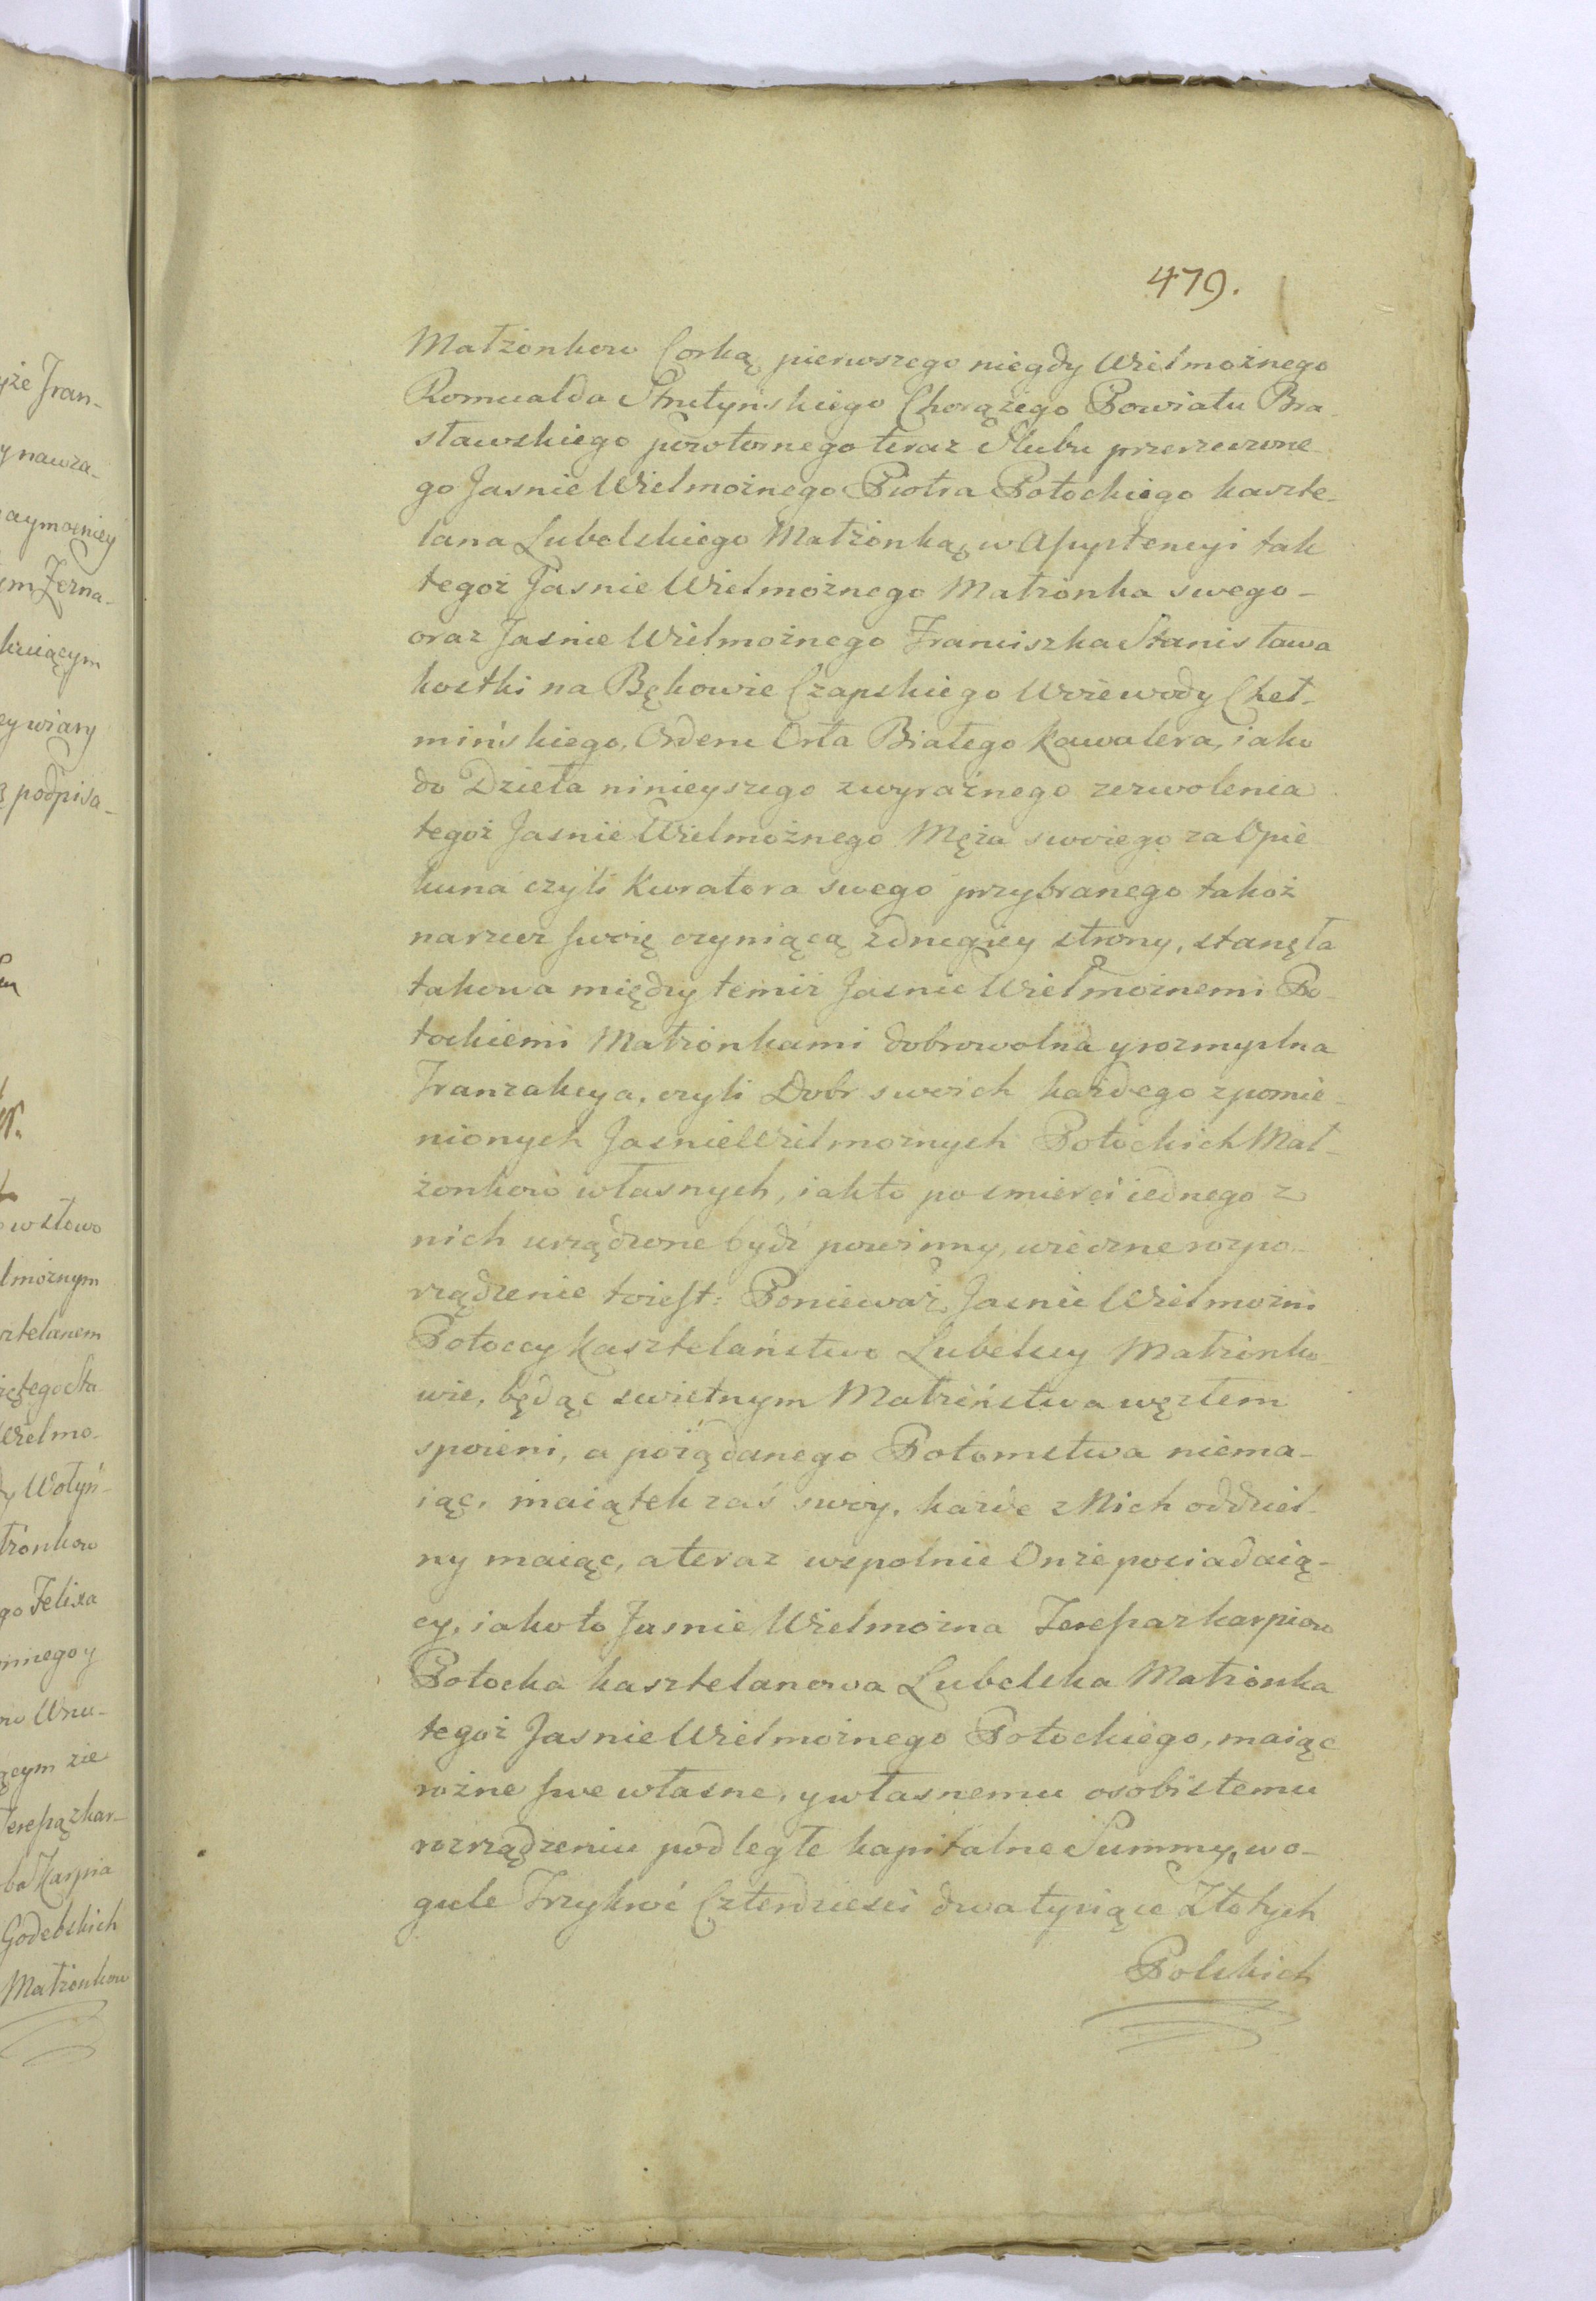 479.
Małżonkow Corką, pierwszego niegdy Wielmożnego
Romualda Strutyńskiego Chorążego Powiatu Bra-
sławskiego powtornego teraz Slubu przerzeczone-
go Jasnie Wielmożnego Piotra Potockiego kaszte-
lana Lubelskiego Małżonką, w Assystencyi tak
tegoż Jasnie Wielmożnego Małżonka swego -
oraz Jasnie Wielmożnego Franciszka Stanisława
kostki na Bękowie Czapskiego Woiewody Cheł-
mińskiego, Orderu Orła Białego Kawalera, iako
do Dzieła ninieyszego zwyraźnego zezwolenia
tegoż Jasnie Wielmożnego Męża swoiego za Opie
kuna czyli Kuratora swego przybranego takoż
narzecz swoię czyniącą zdrugiey strony, stanęła
takowa między temiż Jasnie Wielmożnemi Po-
tockiemi Małżonkami dobrowolna y rozmyslna
Tranzakcya, czyli Dobr swoich każdego zpomie-
nionych Jasnie Wielmożnych Potockich Mał-
żonkow własnych, iak to po smierci iednego z
nich urządzone bydź powinny, wieczne rozpo-
rządzenie toiest: Ponieważ Jasnie Wielmożni
Potoccy Kasztelaństwo Lubelscy Małżonko-
wie, będąc swietnym Małżeństwa węzłem
spoieni, a pożądanego Potomstwa niema-
iąc, maiątek zaś swoy, każde z Nich oddziel-
ny maiąc, a teraz wspolnie Onże posiadaią-
cy, iako to Jasnie Wielmożna Teressa z karpiow
Potocka kasztelanowa Lubelska Małżonka
tegoż Jasnie Wielmożnego Potockiego, maiąc
rożne swe własne, y własnemu osobistemu
rozrządzeniu podległe kapitalne Summy, wo-
gule Trzykroć Czterdziesci dwa tysiące Złotych
Polskich
yże Tran-
y nawza-
aymocniey
im Zezna-
kuiącym
ey wiary
podpisa-
w słowo
lmożnym
sztelanem
iętego Sta
Wielmo-
y Wołyń-
łżonkow
go Felixa
nnego y
Wnu-
ącym zie
Teressą z kar-
ba Karpia
Godebskich
Małżonkow